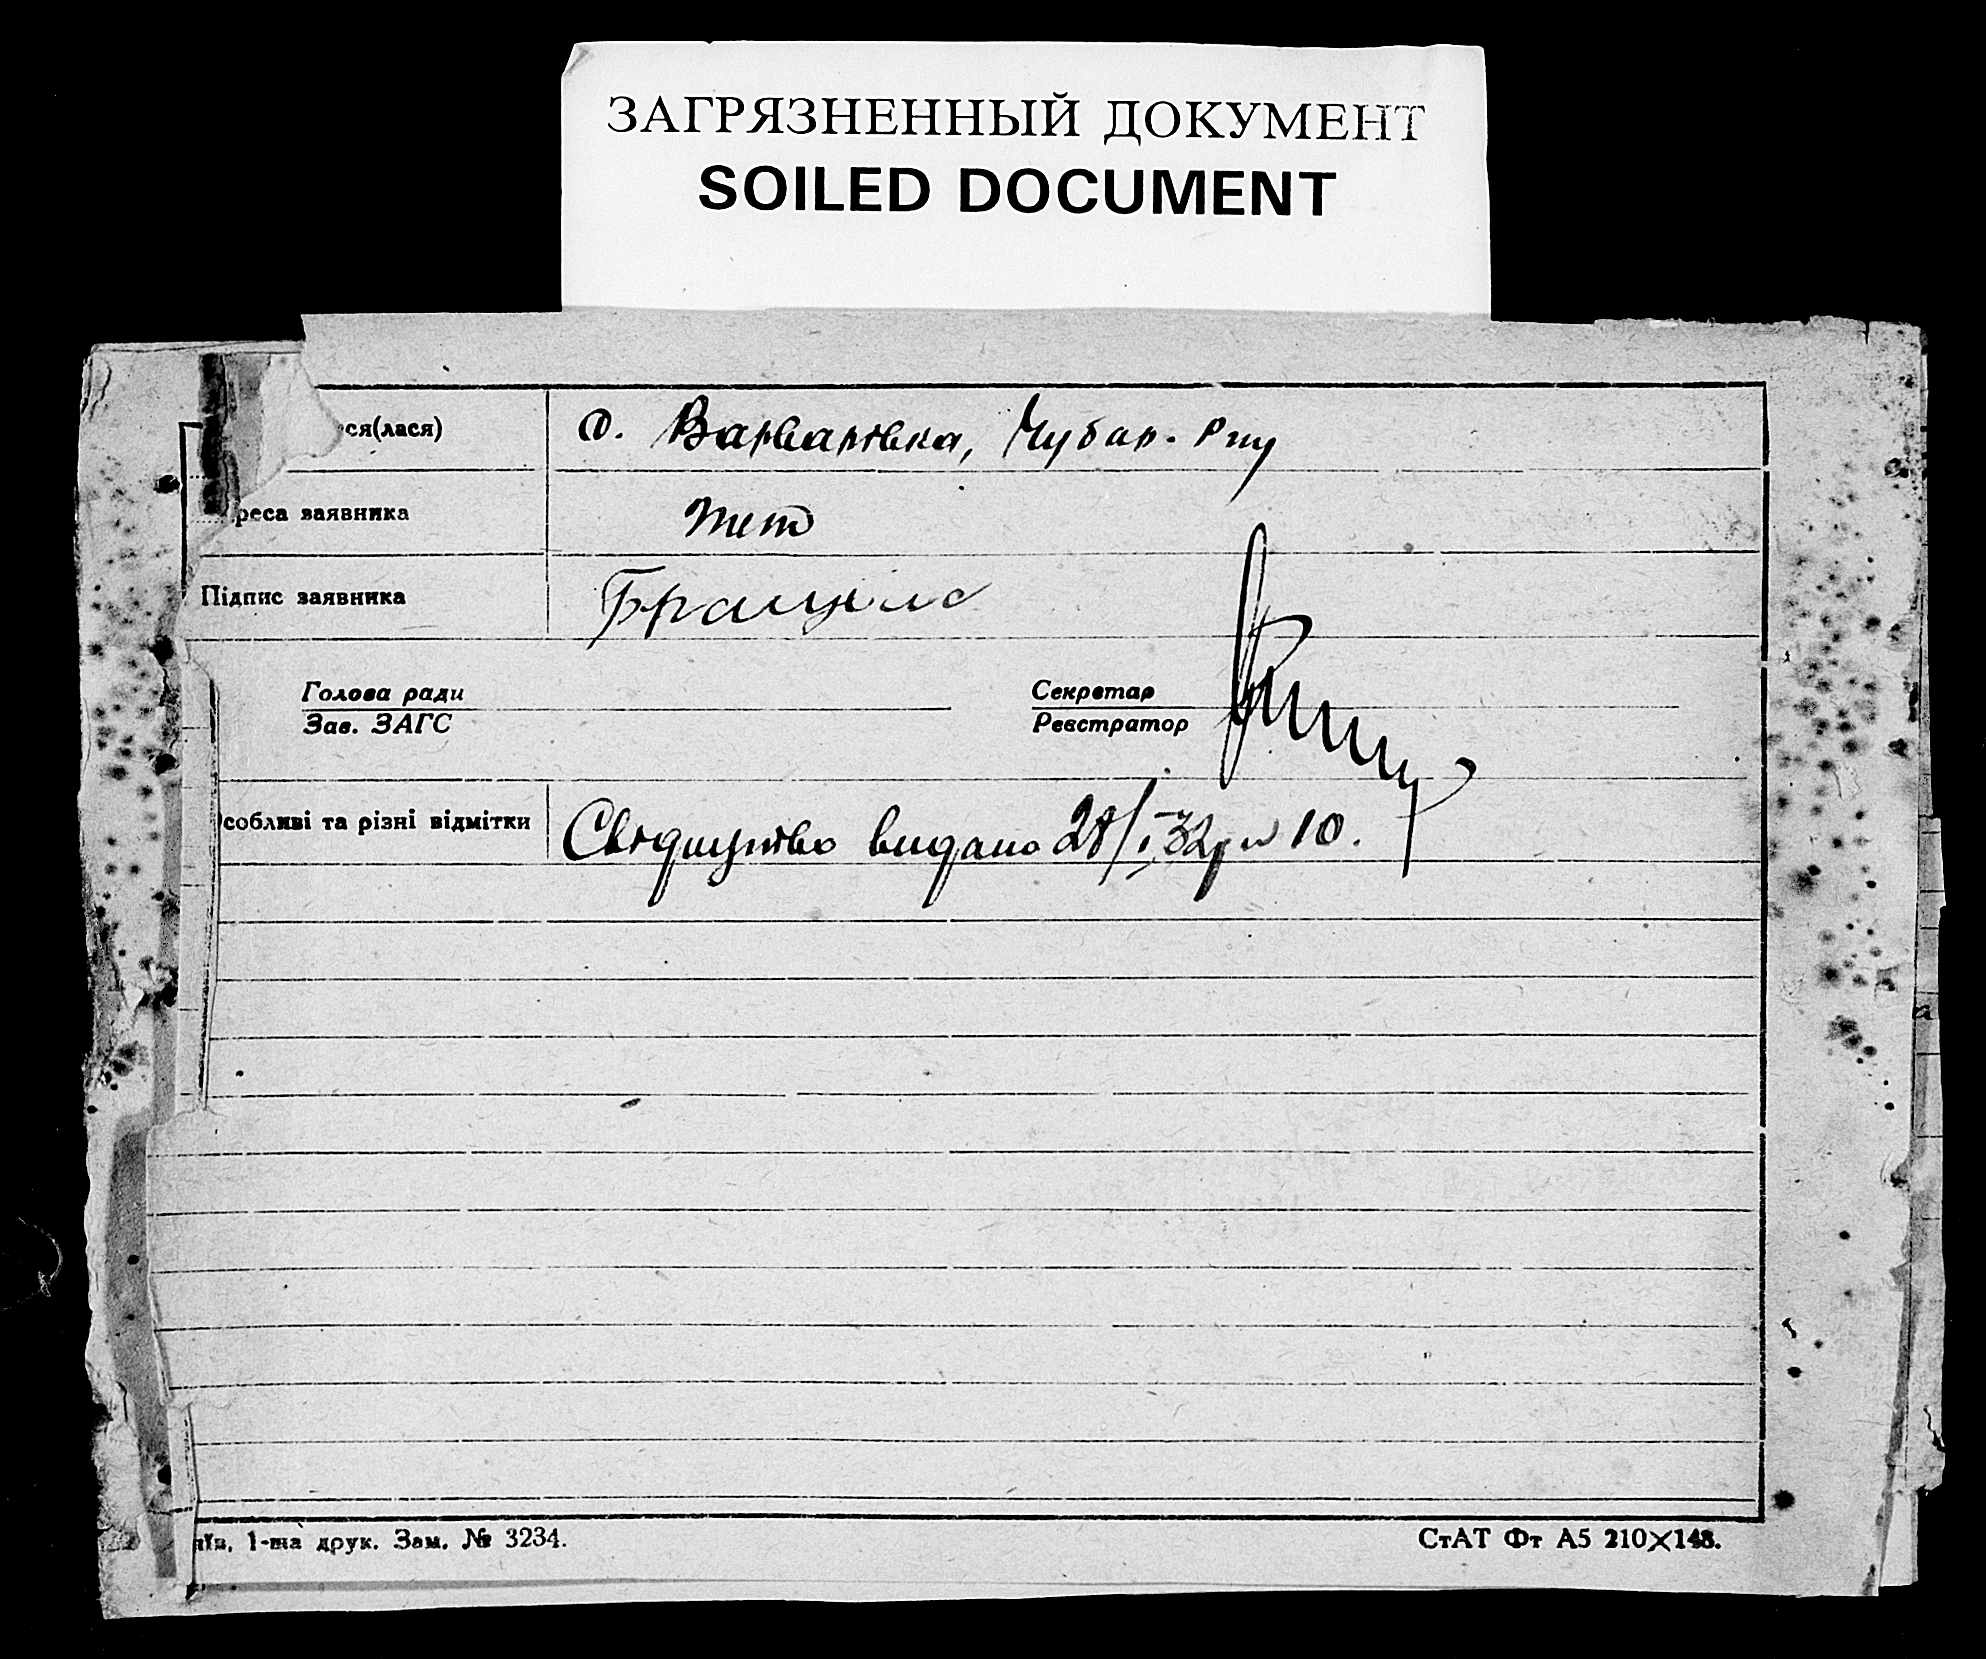 ЗАГРЯЗНЕННЫЙ ДОКУМЕНТ
SOILED DOCUMENT
ся(лася) с. Варварівка, Чубар. р-ну
реса заявника
Підпис заявника
Голова ради
Зав. ЗАГС
Секретар
Реєстратор
собливі та різні відмітки Свідоцтво видано 28/І 32р № 10.
їв, 1-ша друк. Зам. № 3234.
СтАТ Фт А5 210×148.